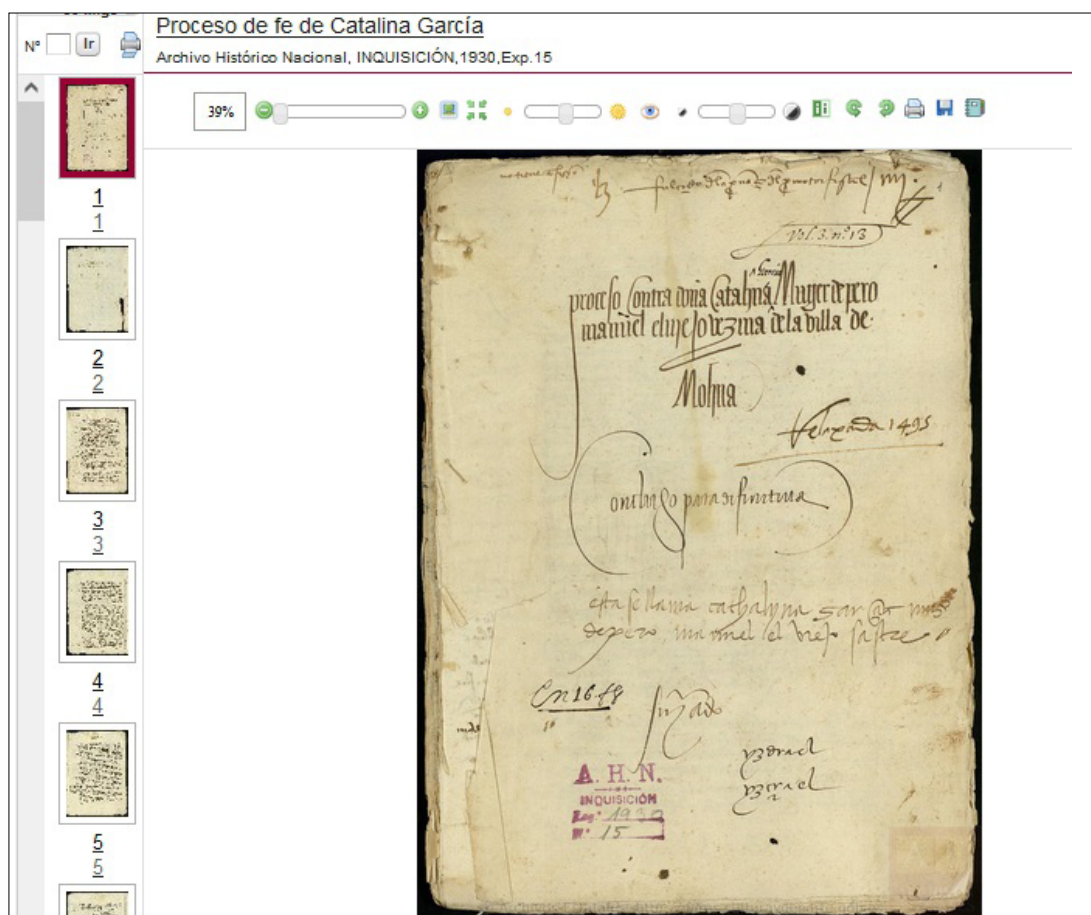 Proceso de fe de Catalina García
Nº Ir
Archivo Histórico Nacional, INQUISICIÓN,1930,Exp.15
39%
1
1
2
2
3
3
4
4
5
5
Vol. 3. nº 13
proceso contra doña Catalina garcia Muger de pero
manuel el viejo vezina de la villa de
Molina
Relaxada 1495
Concluso para difinitiva
esta se llama cathalyna
de pero manuel el viejo sastre
En 16 fs
A. H. N.
INQUISICIÓN
Leg.º 1930
N.º 15